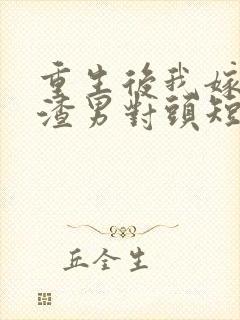 重生後我嫁
渣男對頭短
丘全生